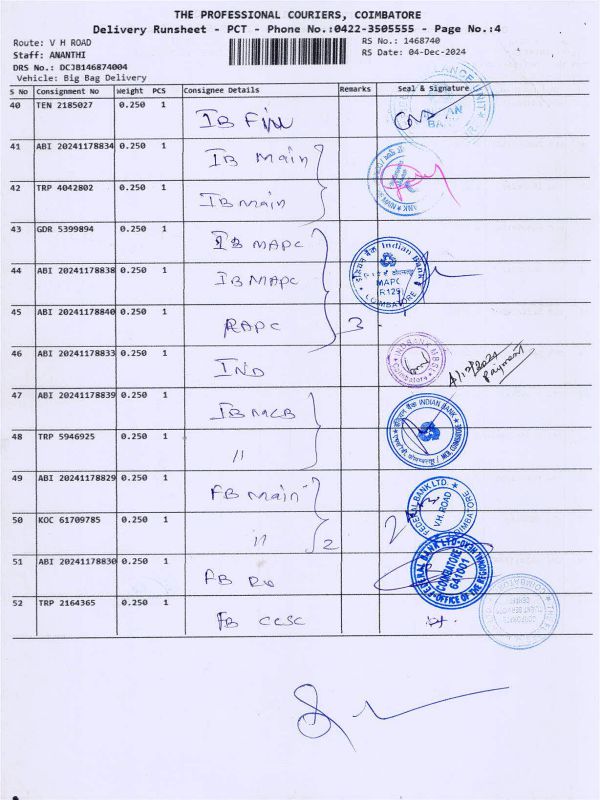 THE PROFESSIONAL COURIERS, COIMBATORE
Delivery Runsheet - PCT - Phone No.:0422-3505555 - Page No.:4
Route: V H ROAD
RS No.: 1468740
Staff: ANANTHI
RS Date: 04-Dec-2024
DRS No.: DCJB146874004
Vehicle: Big Bag Delivery
S No Consignment No Weight PCS Consignee Details Remarks Seal & Signature
40 TEN 2185027 0.250 1 IB
41 ABI 20241178834 0.250 1 IB Main
42 TRP 4042802 0.250 1 IB Main
43 GDR 5399894 0.250 1 IB MAPC
44 ABI 20241178838 0.250 1 IB MAPC
45 ABI 20241178840 0.250 1 RAPC 3
46 ABI 20241178833 0.250 1 IND
47 ABI 20241178839 0.250 1 IB MCB
48 TRP 5946925 0.250 1 "
49 ABI 20241178829 0.250 1 FB Main
50 KOC 61709785 0.250 1 " 2
51 ABI 20241178830 0.250 1 FB
52 TRP 2164365 0.250 1 FB CCSC
BANK
इंडियन बैंक Indian Bank
MAPC
COIMBATORE
Payment
INDIAN BANK
FEDERAL BANK LTD.
V.H. ROAD
COIMBATORE
FEDERAL BANK LTD
COIMBATORE
641001
OFFICE OF THE REGIONAL HEAD